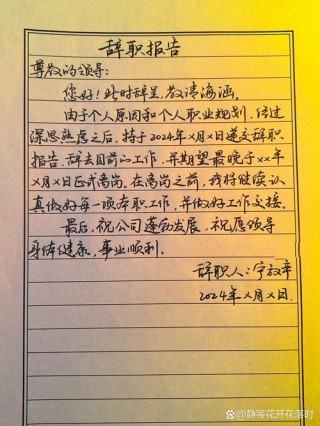 辞职报告
尊敬的领导:
您好!此时辞呈,敬请海涵。
由于个人原因和个人职业规划,经过
深思熟虑之后,特于2024年X月X日递交辞职
报告,辞去目前的工作,并期望最晚于XX年
X月X日正式离岗。在离岗之前,我将继续认
真做好每一项本职工作,并做好工作交接。
最后,祝公司蓬勃发展,祝愿领导
身体健康,事业顺利。
辞职人:宁
2024年X月X日.
@静等花开花落时